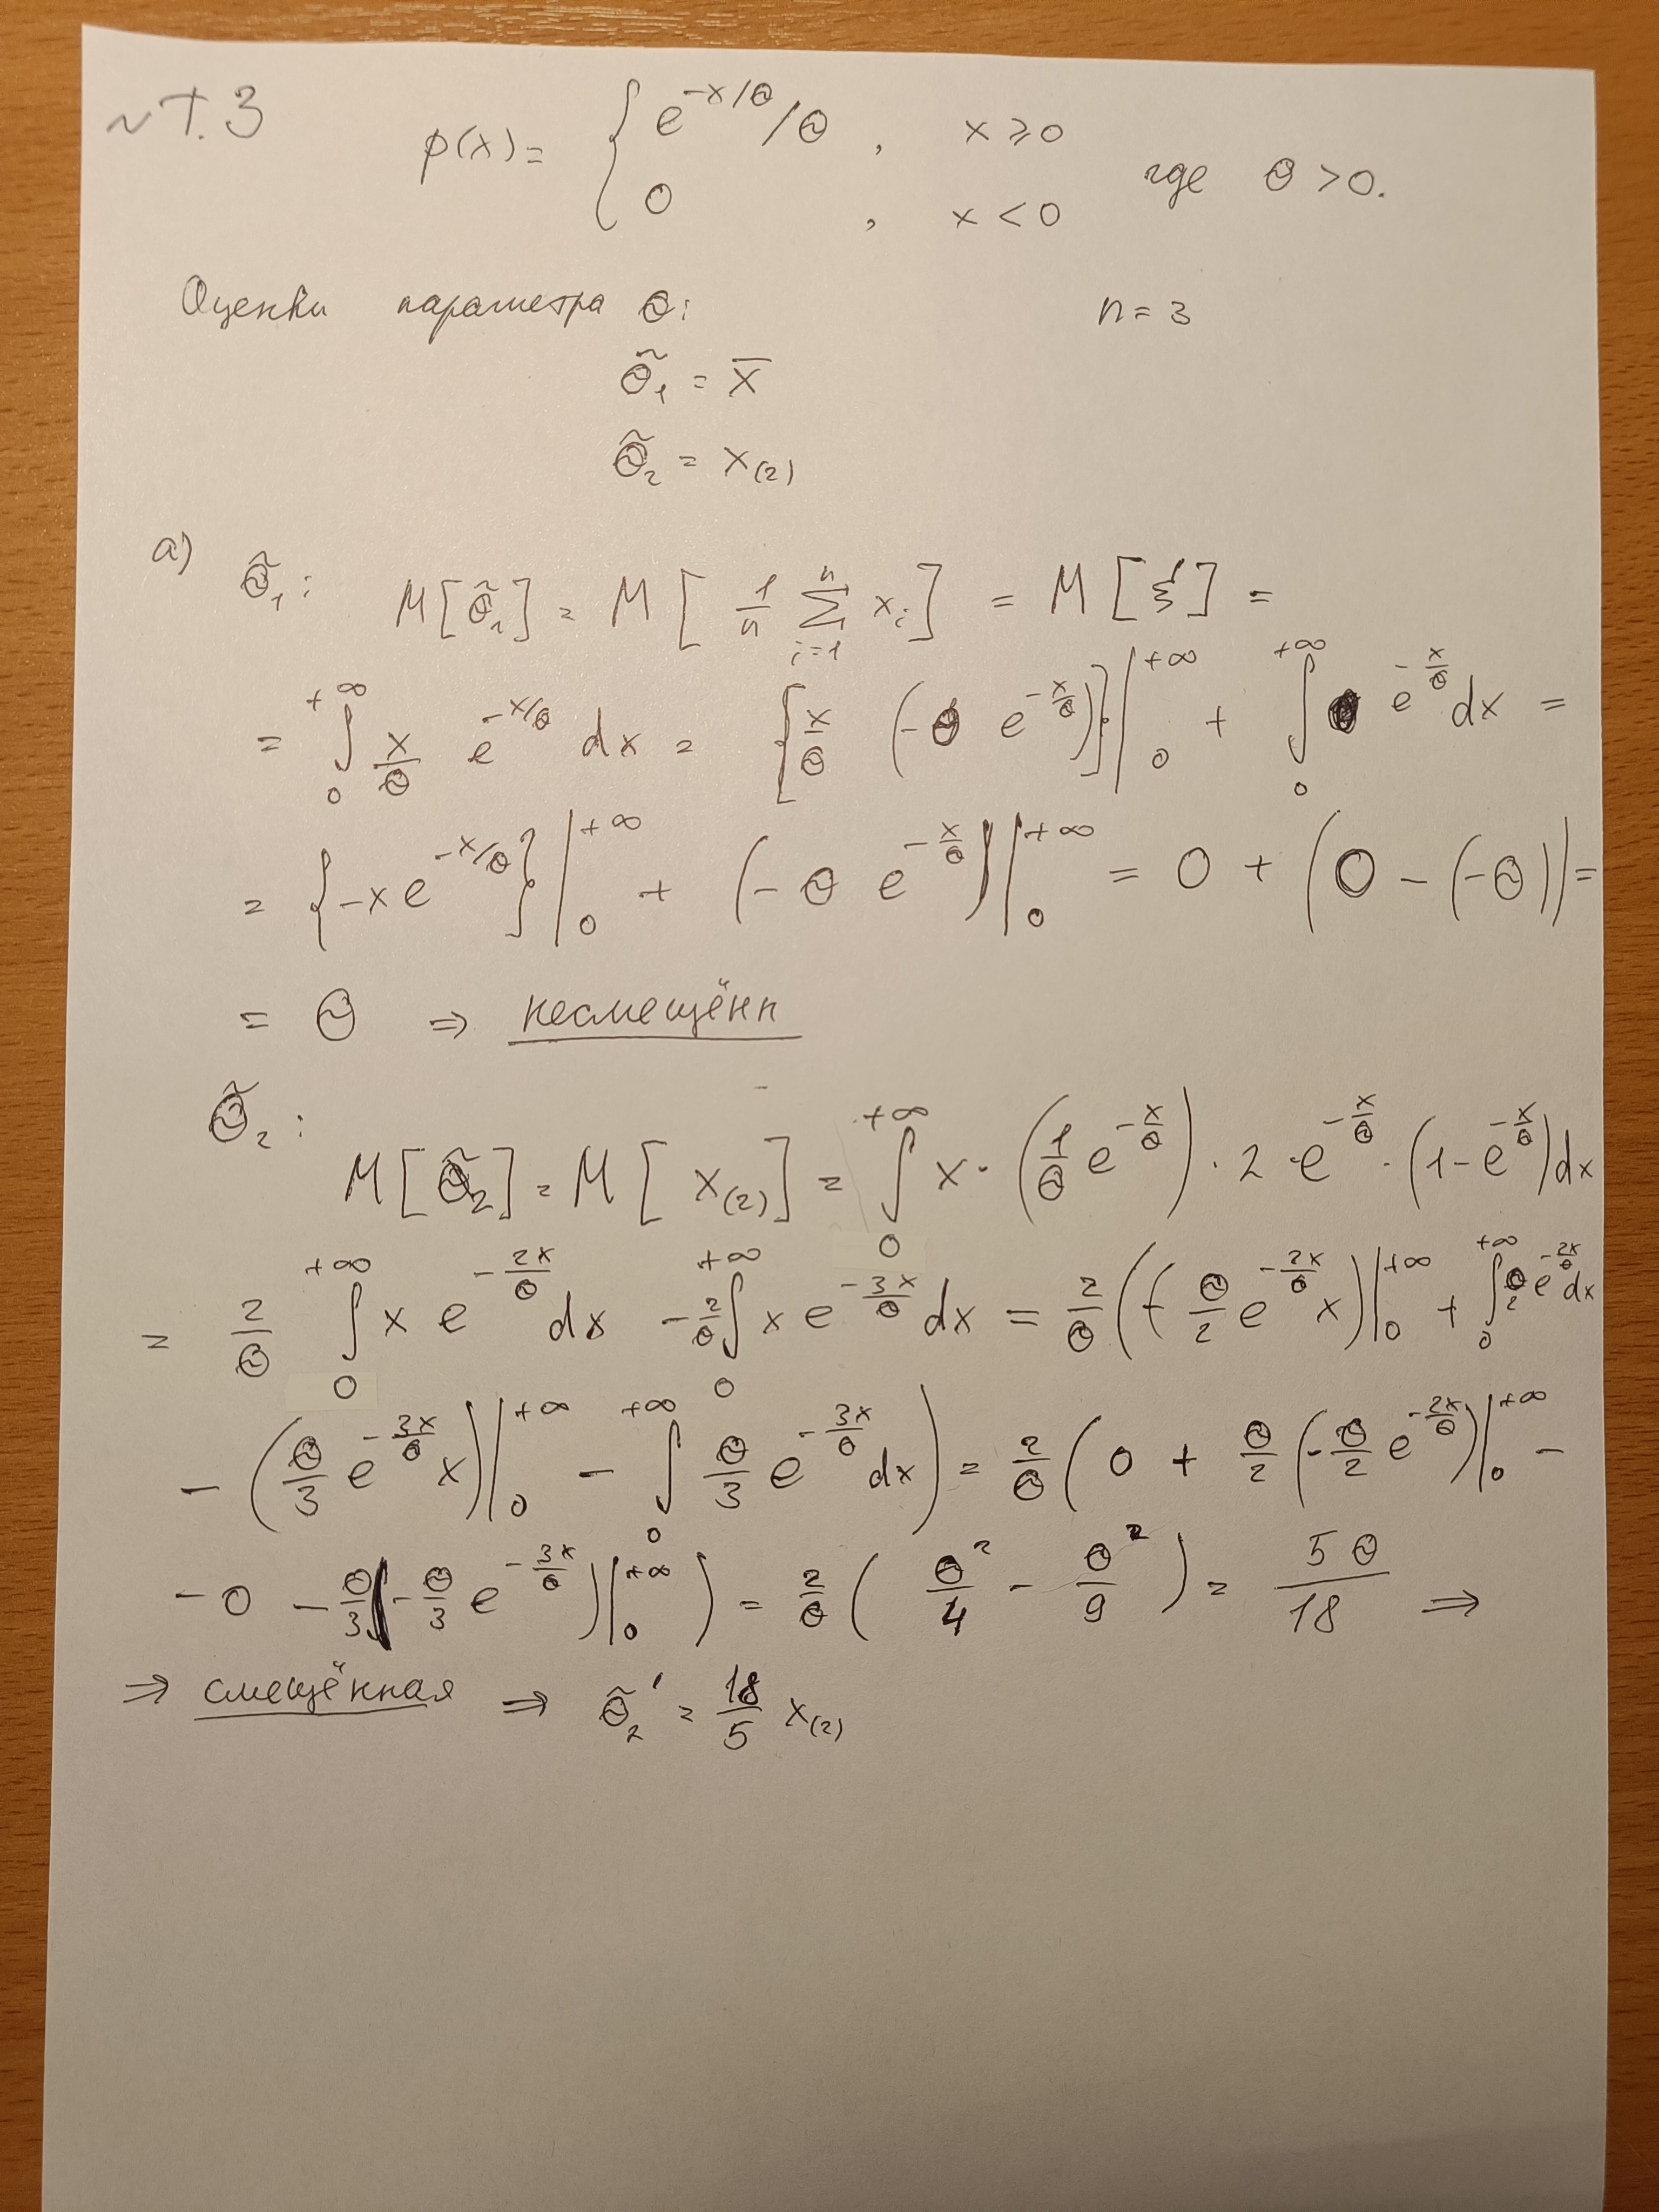 ~ T. 3
p(x) = { e^{-x/θ}/θ , x ⩾ 0
0 , x < 0 где θ > 0.
Оценки параметра θ: n = 3
θ̃₁ = x̄
θ̃₂ = x₍₂₎
а) θ̃₁: M[θ̃₁] = M[ 1/n ∑_{i=1}^{n} x_i ] = M[ξ] =
= ∫_0^{+∞} x/θ e^{-x/θ} dx = {x/θ (-θ e^{-x/θ})}|_0^{+∞} + ∫_0^{+∞} e^{-x/θ} dx =
= {-x e^{-x/θ}}|_0^{+∞} + (-θ e^{-x/θ})|_0^{+∞} = 0 + (0 - (-θ)) =
= θ ⇒ несмещённ
θ̃₂:
M[θ̃₂] = M[ x₍₂₎ ] = ∫_0^{+∞} x · (1/θ e^{-x/θ}) · 2 · e^{-x/θ} · (1 - e^{-x/θ}) dx
= 2/θ ∫_0^{+∞} x e^{-2x/θ} dx - 2/θ ∫_0^{+∞} x e^{-3x/θ} dx = 2/θ ((- θ/2 e^{-2x/θ} x)|_0^{+∞} + ∫_0^{+∞} θ/2 e^{-2x/θ} dx
- (θ/3 e^{-3x/θ} x)|_0^{+∞} - ∫_0^{+∞} θ/3 e^{-3x/θ} dx) = 2/θ (0 + θ/2 (-θ/2 e^{-2x/θ})|_0^{+∞} -
- 0 - θ/3 (-θ/3 e^{-3x/θ})|_0^{+∞}) = 2/θ (θ²/4 - θ²/9) = 5θ/18 ⇒
⇒ смещённая ⇒ θ̃₂' = 18/5 x₍₂₎